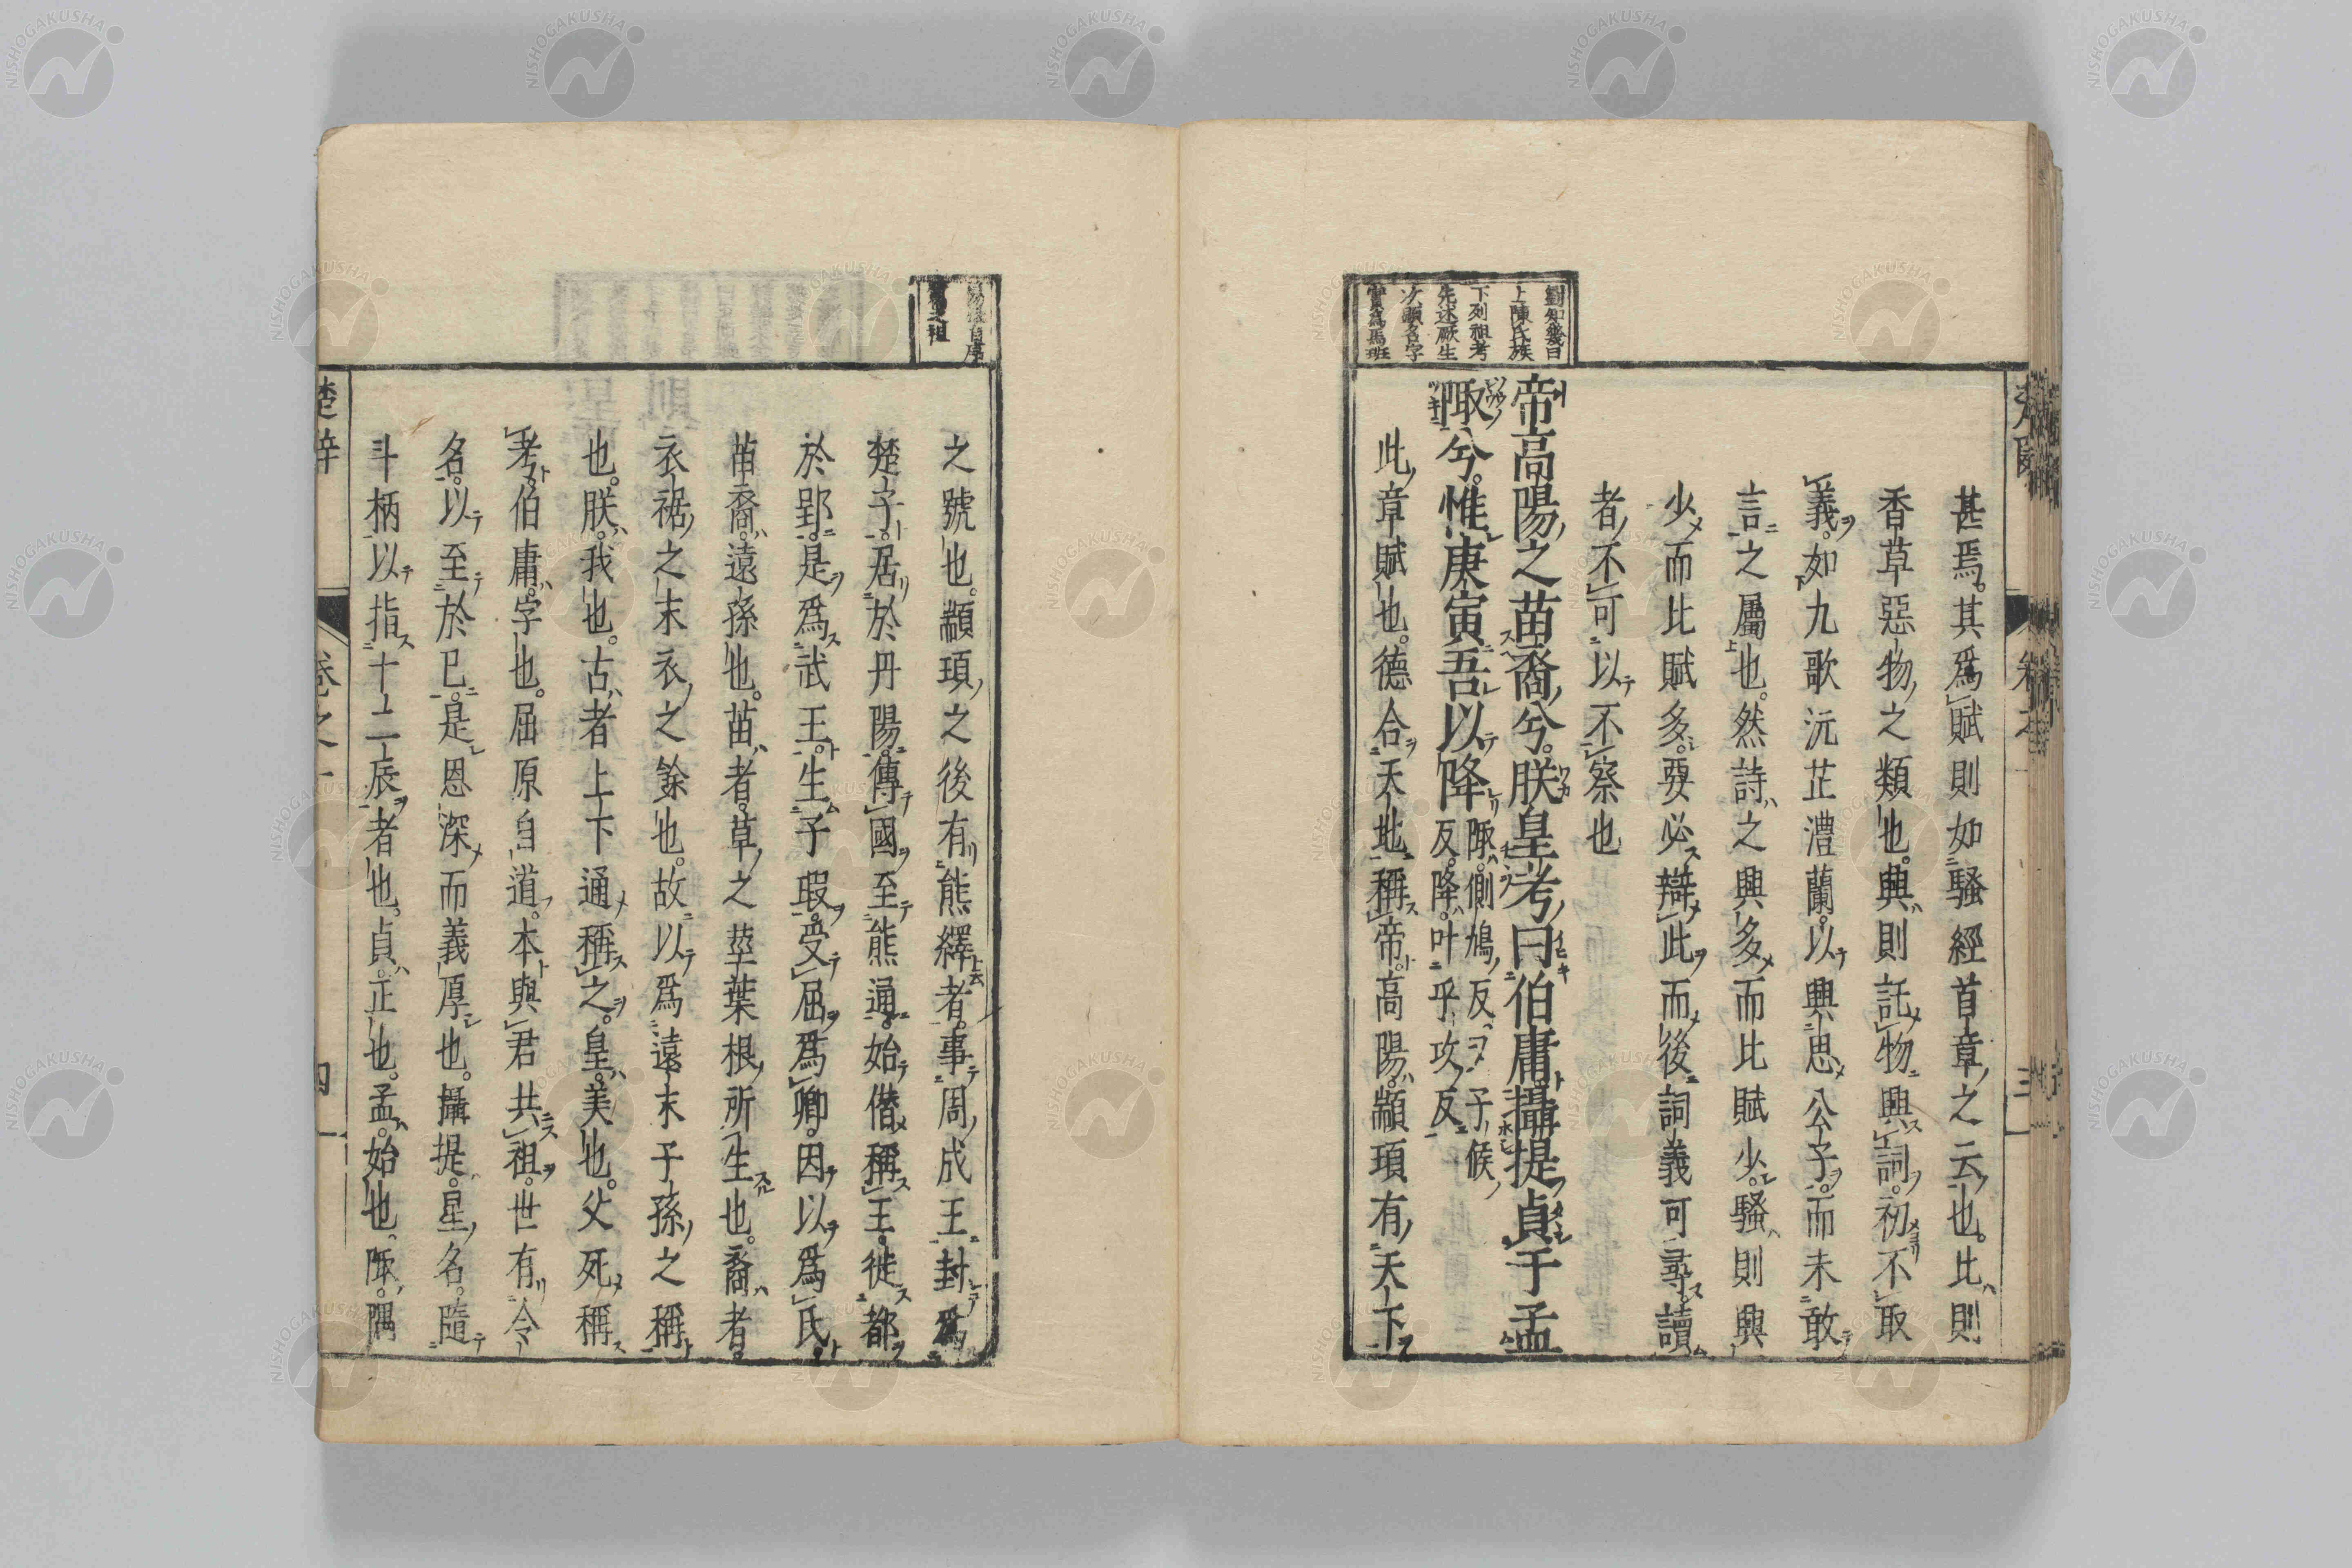 劉知幾曰
上陳氏族
下列祖考
先述厥生
次顯名字
實爲馬班
甚焉。其爲賦則如騷經首章之云也。比則
香草惡物之類也。興則託物興詞。初不取
義。如九歌沅芷澧蘭。以興思公子。而未敢
言之屬也。然詩之興多而比賦少。騷則興
少而比賦多。要必辯此而後詞義可尋。讀
者不可以不察也
帝高陽之苗裔兮。朕皇考曰伯庸。攝提貞于孟
陬兮。惟庚寅吾以降
陬。側鳩反。又子侯
反。降。叶乎攻反
此章賦也。德合天地稱帝。高陽。顓頊有天下
之號也。顓頊之後有熊繹者。事周成王。封爲
楚子。居於丹陽。傳國至熊通。始僭稱王。徙都
於郢。是爲武王。生子瑕。受屈爲卿。因以爲氏。
苗裔。遠孫也。苗者。草之莖葉根所生也。裔者。
衣裾之末衣之餘也。故以爲遠末子孫之稱
也。朕。我也。古者上下通稱之。皇。美也。父死稱
考。伯庸。字也。屈原自道。本與君共祖。世有令
名。以至於已。是恩深而義厚也。攝提。星名。隨
斗柄以指十二辰者也。貞。正也。孟。始也。陬。隅
楚辞
卷之一
四